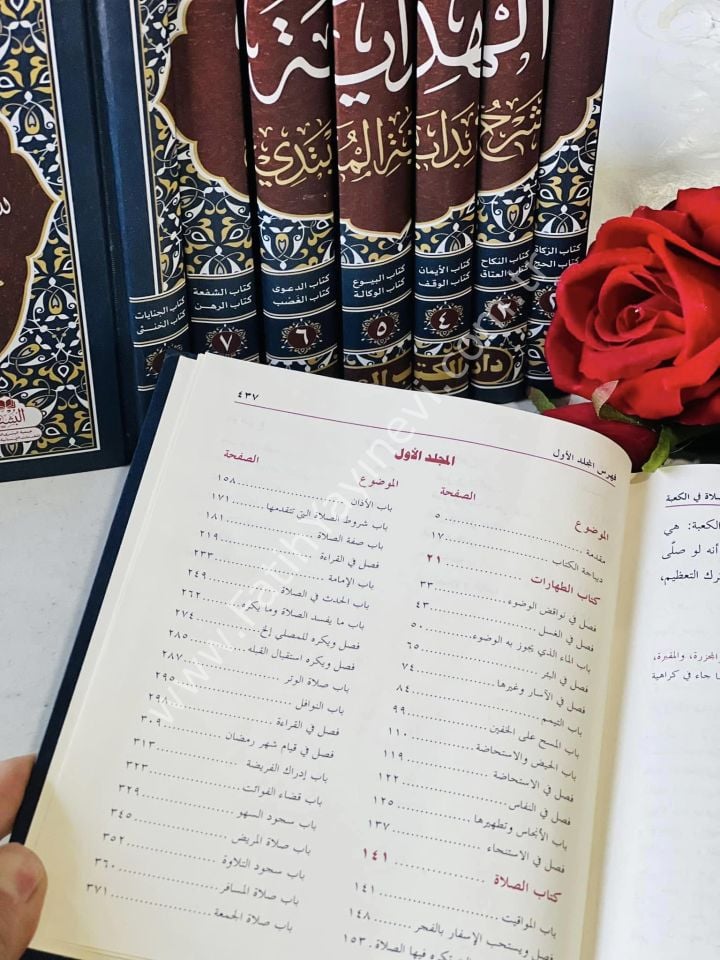 الهداية
شرح بداية المبتدي
كتاب الزكاة
كتاب الحج
كتاب النكاح
كتاب العتاق
٣
كتاب الأيمان
كتاب الوقف
٤
كتاب البيوع
كتاب الوكالة
٥
كتاب الدعوى
كتاب الغصب
٦
كتاب الشفعة
كتاب الرهن
٧
كتاب الجنايات
كتاب الخنثى
فهرس المجلد الأول
٤٣٧
المجلد الأول
الموضوع الصفحة
مقدمة ٥
ديباجة الكتاب ١٧
كتاب الطهارات ٢١
فصل في نواقض الوضوء ٣٣
فصل في الغسل ٤٣
باب الماء الذي يجوز به الوضوء ٥٠
فصل في البئر ٦٥
فصل في الآسار وغيرها ٧٤
باب التيمم ٨٤
باب المسح على الخفين ٩٩
باب الحيض والاستحاضة ١١٠
فصل في الاستحاضة ١١٩
فصل في النفاس ١٢٢
باب الأنجاس وتطهيرها ١٢٥
فصل في الاستنجاء ١٣٧
كتاب الصلاة ١٤١
باب المواقيت ١٤١
فصل ويستحب الإسفار بالفجر ١٤٨
تكره فيها الصلاة . ١٥٣
الموضوع الصفحة
باب الأذان ١٥٨
باب شروط الصلاة التي تتقدمها ١٧١
باب صفة الصلاة ١٨١
فصل في القراءة ٢١٩
باب الإمامة ٢٣٣
باب الحدث في الصلاة ٢٤٩
باب ما يفسد الصلاة وما يكره ٢٦٢
فصل ويكره للمصلي إلخ ٢٧٤
فصل ويكره استقبال القبلة ٢٨٥
باب صلاة الوتر ٢٨٧
باب النوافل ٢٩٥
فصل في القراءة ٢٩٨
فصل في قيام شهر رمضان ٣٠٩
باب إدراك الفريضة ٣١٣
باب قضاء الفوائت ٣٢٣
باب سجود السهو ٣٢٩
باب صلاة المريض ٣٤٥
باب سجود التلاوة ٣٥٢
باب صلاة المسافر ٣٦٠
باب صلاة الجمعة ٣٧١
صلاة في الكعبة
الكعبة: هي
أنه لو صلّى
ترك التعظيم،
المجزرة، والمقبرة،
ما جاء في كراهية
www.FatihYayinevi.com.tr